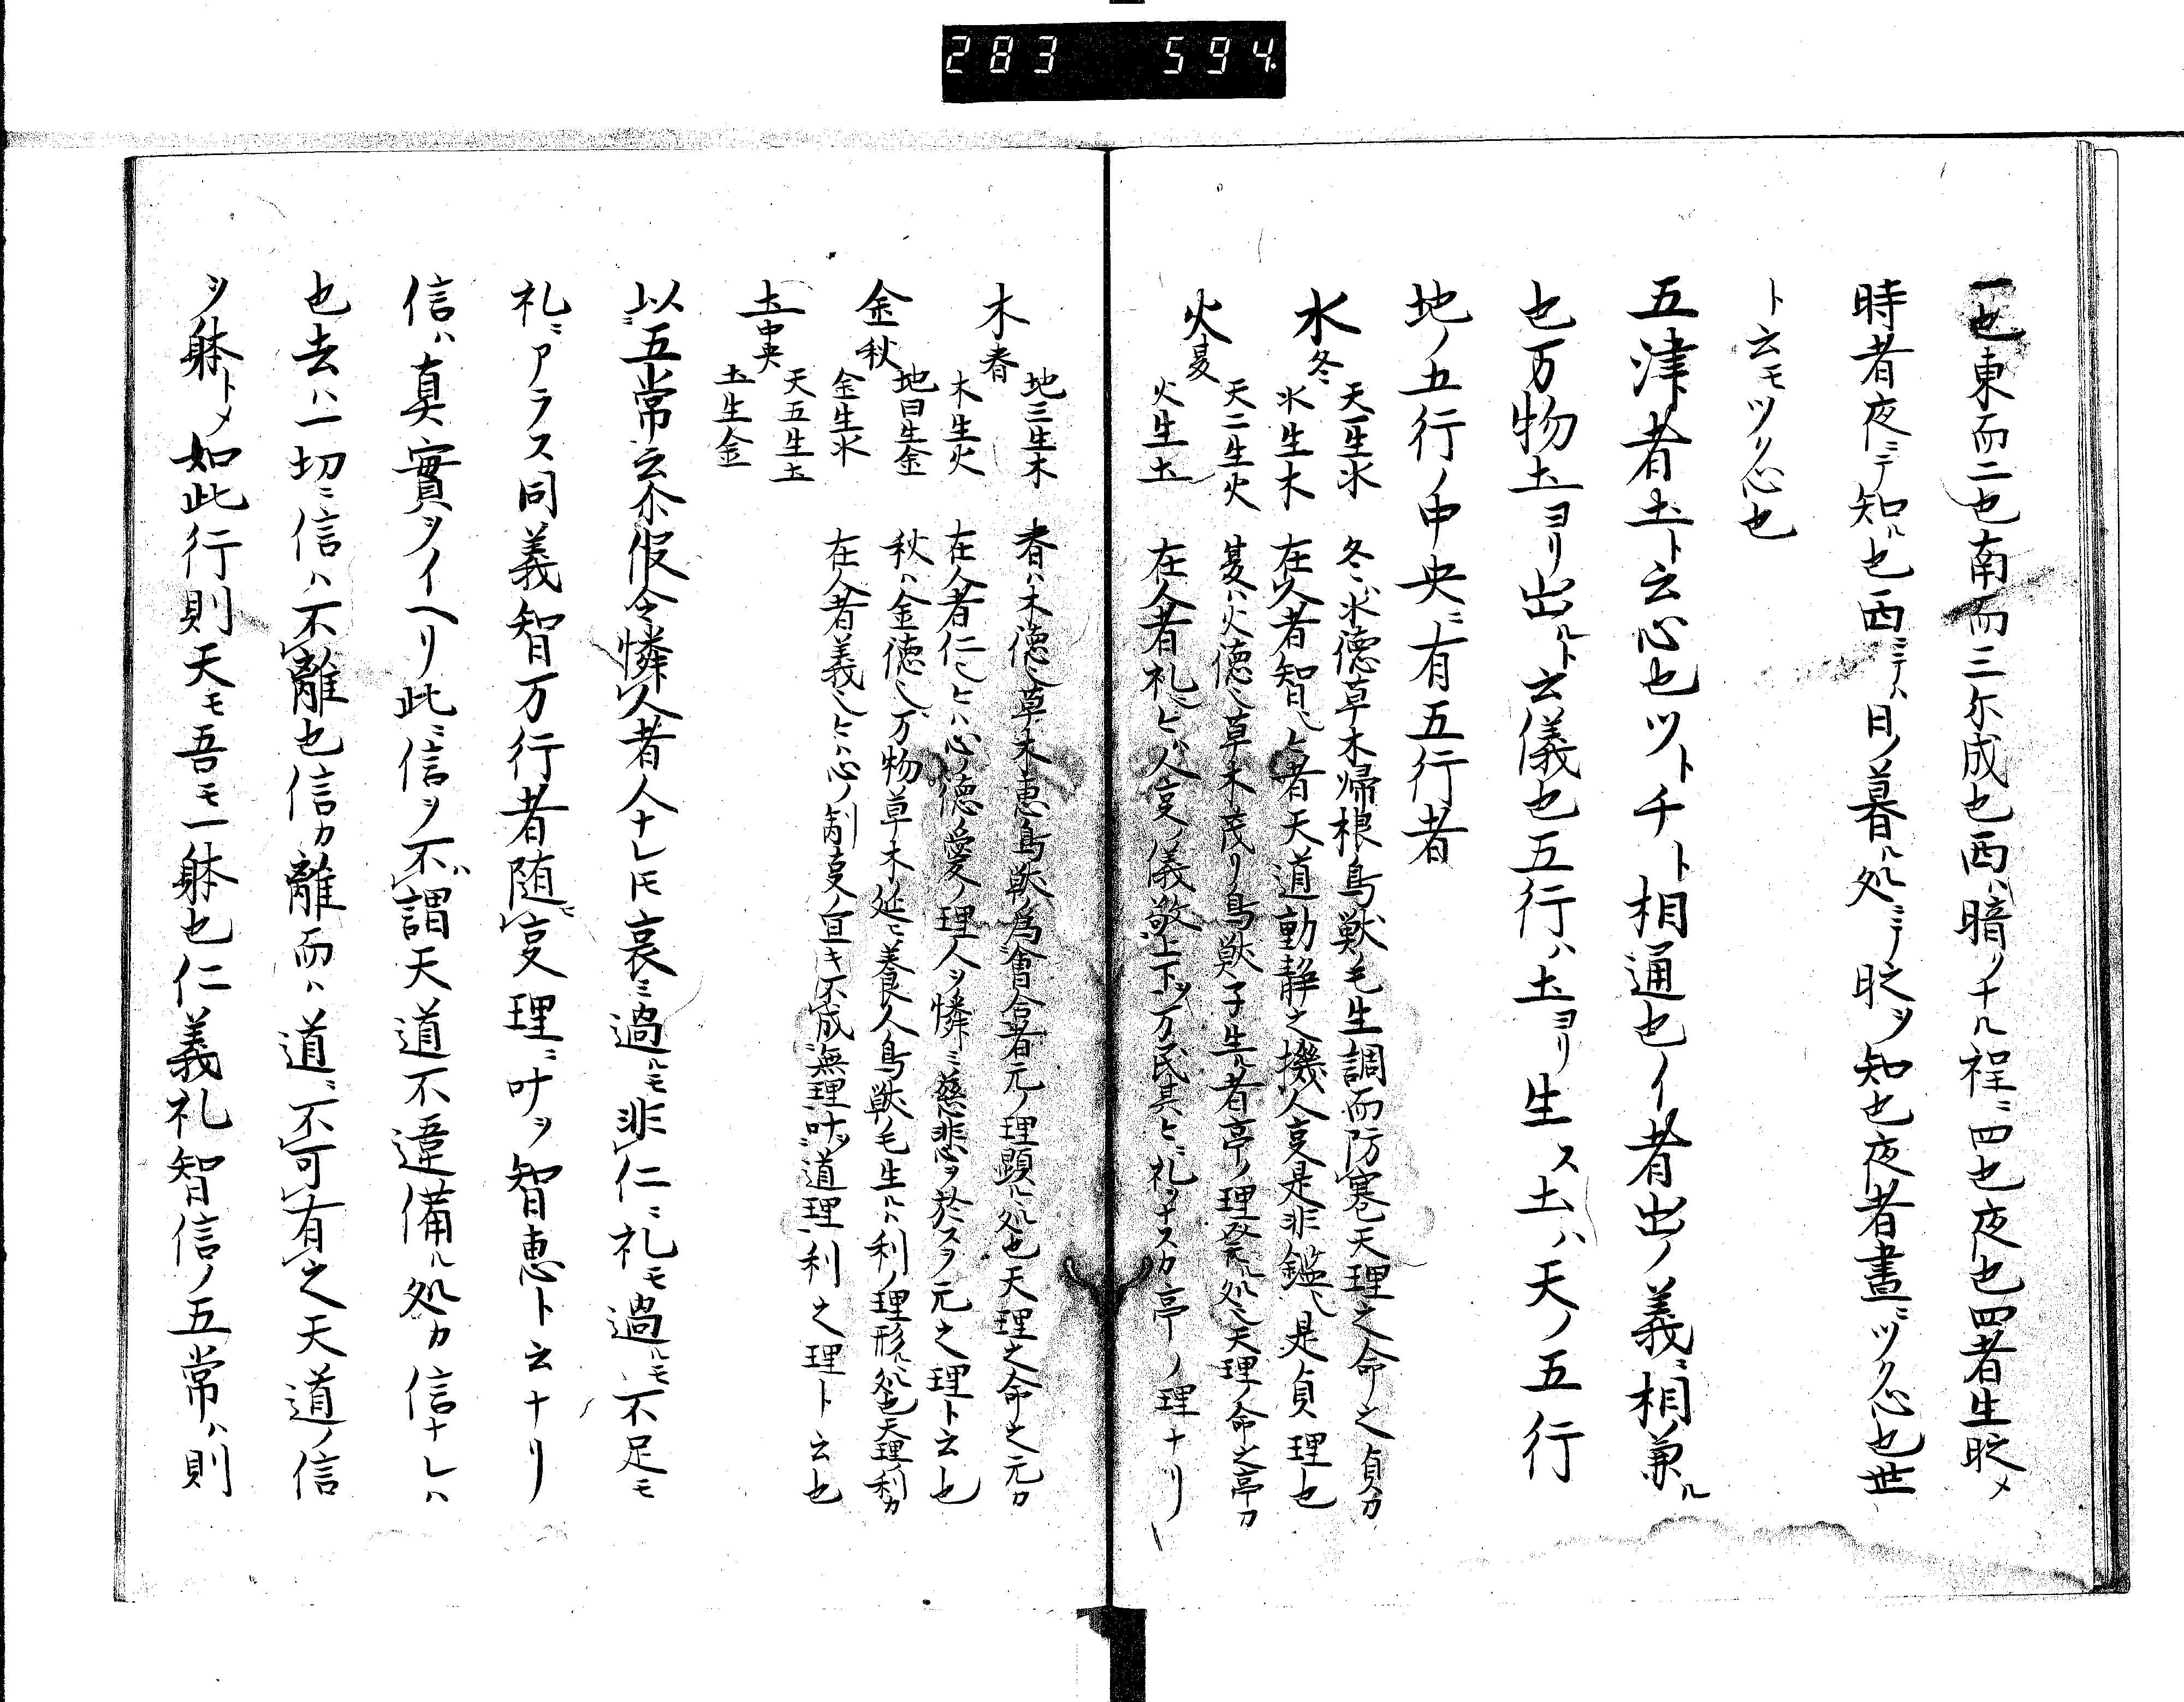 283 594
一也東而二也南而三尓成也西ハ暗ノナル程ニ四也夜也四者生昵〆
時者夜ニテ知ル也西ニテハ日ノ暮ル処ニテ昵ヲ知也夜者晝ニツク心也世
ト云モツク心也
五津者土ト云心也ツトチト相通也イ者出ノ義ニ相兼ル
也万物土ヨリ出ルト云儀也五行ハ土ヨリ生ス土ハ天ノ五行
地ノ五行ノ中央ニ有五行者
水冬 天一生水 冬ハ水徳草木帰根鳥獣毛生調而防寒天理之命之貞カ
水生木 在人者智也ヒ者天道動静之機人叓是非鑑也是貞理也
火夏 天二生火 夏ハ火徳也草木茂リ鳥獣子生ル者亭ノ理登ル処也天理ノ命之亭カ
火生土 在人者礼也ヒハ人叓ノ儀敬上下ヲ万民其ヒニ礼ヲナスカ亭ノ理ナリ
木春 地三生木 春ハ木徳也草木恵鳥獣ノ為會合者元ノ理顕ル処也天理之命之元カ
木生火 在人者仁也ヒハ心ノ徳愛ノ理人ヲ憐ミ慈悲ヲ於スヲ元之理ト云也
金秋 地四生金 秋ハ金徳也万物草木延ニ養人鳥獣毛生ルハ利ノ理形ル処也天理ノ利カ
金生水 在人者義也ヒハ心ノ制叓ノ宜キ不成無理叶ヲ道理ニ利之理ト云也
土中央 天五生土
土生金
以五常云尓假令憐人者人ナレ𪜈哀ニ過ルモ非仁ニ礼モ過ルモ不足モ
礼ニアラス同義智万行者随叓理ニ叶ヲ智恵ト云ナリ
信ハ真實ヲイヘリ此ニ信ヲ不謂天道不違備ル処カ信ナレハ
也去ハ一切ニ信ハ不離也信カ離而ハ道ニ不可有之天道ノ信
ヲ躰ト〆如此行則天モ吾モ一躰也仁義礼智信ノ五常ハ則